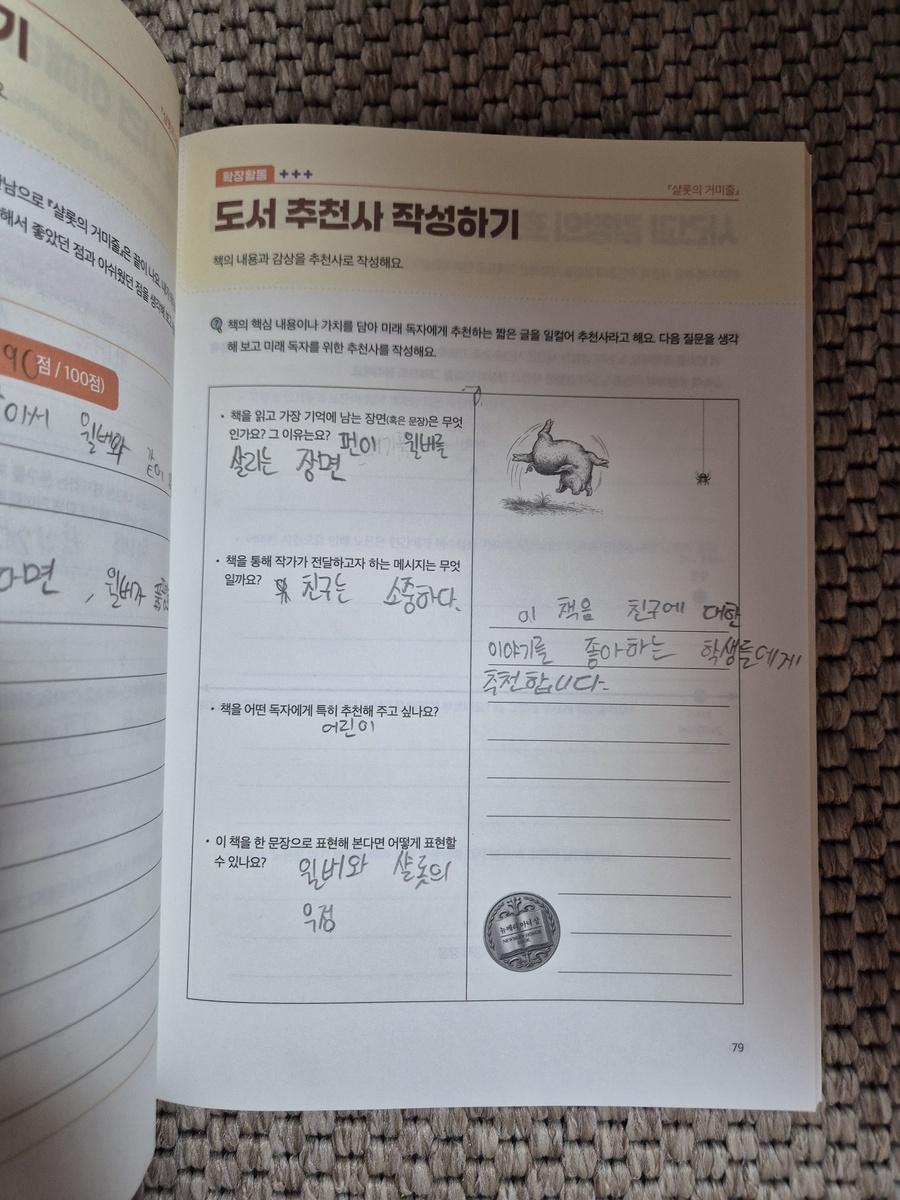 기
요
남으로 『샬롯의 거미줄』은 끝이 나요.
해서 좋았던 점과 아쉬웠던 점을 생각해
90점 / 100점)
이서 윌버와 같이
라면, 윌버가
확장활동 +++
『샬롯의 거미줄』
도서 추천사 작성하기
책의 내용과 감상을 추천사로 작성해요.
책의 핵심 내용이나 가치를 담아 미래 독자에게 추천하는 짧은 글을 일컬어 추천사라고 해요. 다음 질문을 생각
해 보고 미래 독자를 위한 추천사를 작성해요.
• 책을 읽고 가장 기억에 남는 장면(혹은 문장)은 무엇
인가요? 그 이유는요? 펀이 윌버를
살리는 장면
• 책을 통해 작가가 전달하고자 하는 메시지는 무엇
일까요? 친구는 소중하다.
• 책을 어떤 독자에게 특히 추천해 주고 싶나요?
어린이
• 이 책을 한 문장으로 표현해 본다면 어떻게 표현할
수 있나요? 윌버와 샬롯의
우정
이 책음 친구에 대한
이야기를 좋아하는 학생들에게
추천합니다.
뉴베리 아너 상
NEWBERY HONOR
BOOK
79